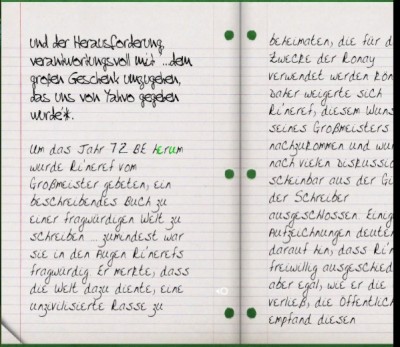 und der Herausforderung,
verantwortungsvoll mit ...dem
großen Geschenk umzugehen,
das uns von Yahvo gegeben
wurde".
Um das Jahr 72 BE herum
wurde Ri'neref vom
Großmeister gebeten, ein
beschreibendes Buch zu
einer fragwürdigen Welt zu
schreiben ... zumindest war
sie in den Augen Ri'nerefs
fragwürdig. Er merkte, dass
die Welt dazu diente, eine
unzivilisierte Rasse zu
beheimaten, die für d
Zwecke der Ronay
verwendet werden kön
Daher weigerte sich
Ri'neref, diesem Wuns
seines Großmeisters
nachzukommen und wur
nach vielen Diskussio
scheinbar aus der Gi
der Schreiber
ausgeschlossen. Einig
Aufzeichnungen deute
darauf hin, dass Ri'n
freiwillig ausgeschied
aber egal, wie er die
verließ, die Öffentlich
empfand diesen